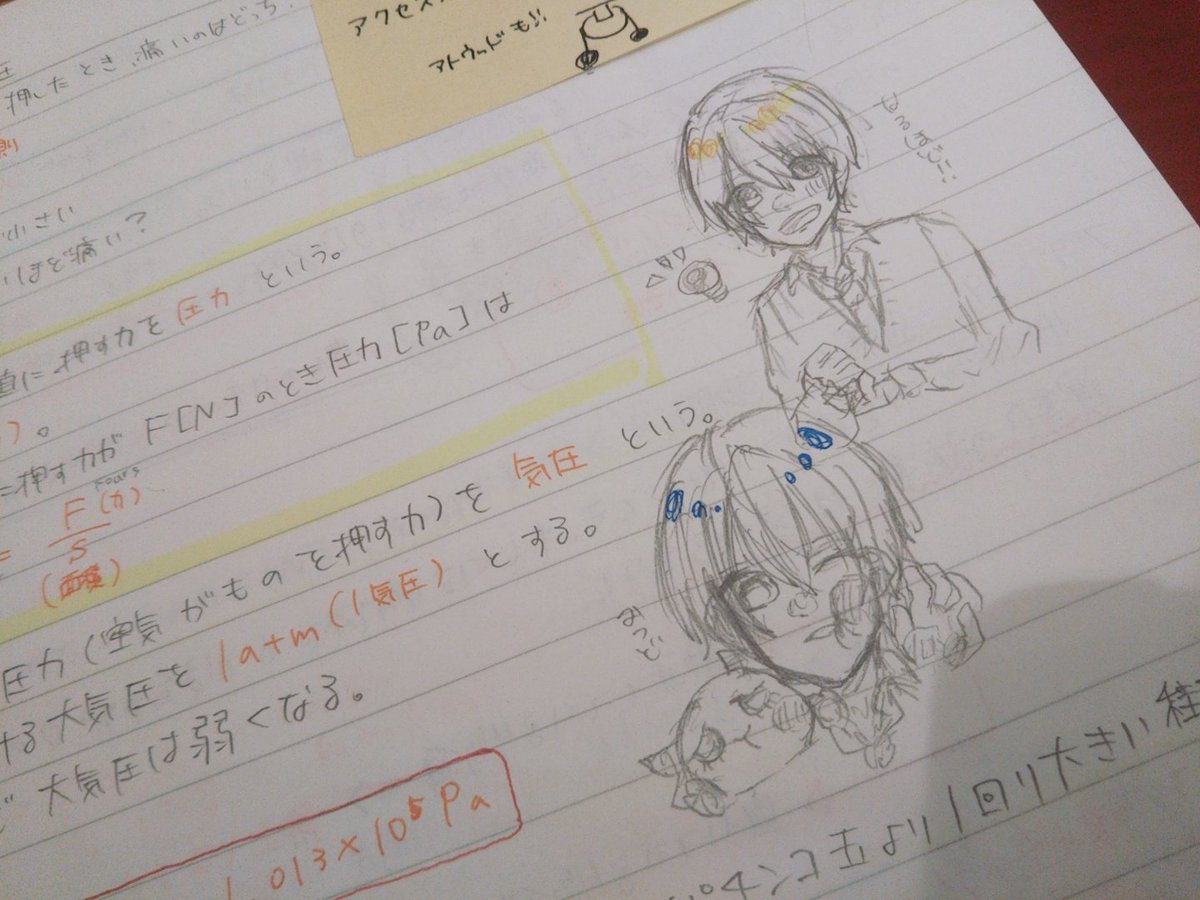 アクセス
アトウッドも!!
圧
押したとき、痛いのはどっち
則
小さい
いほど痛い?
直に押す力を圧力という。
)。
に押す力がF[N]のとき圧力[Pa]は
= F(力)
S
(面積)
圧力(空気がものを押す力)を気圧という。
ける大気圧を1atm(1気圧)とする。
ど大気圧は弱くなる。
1.013×10⁵Pa
パチンコ玉より1回り大きい
みつど